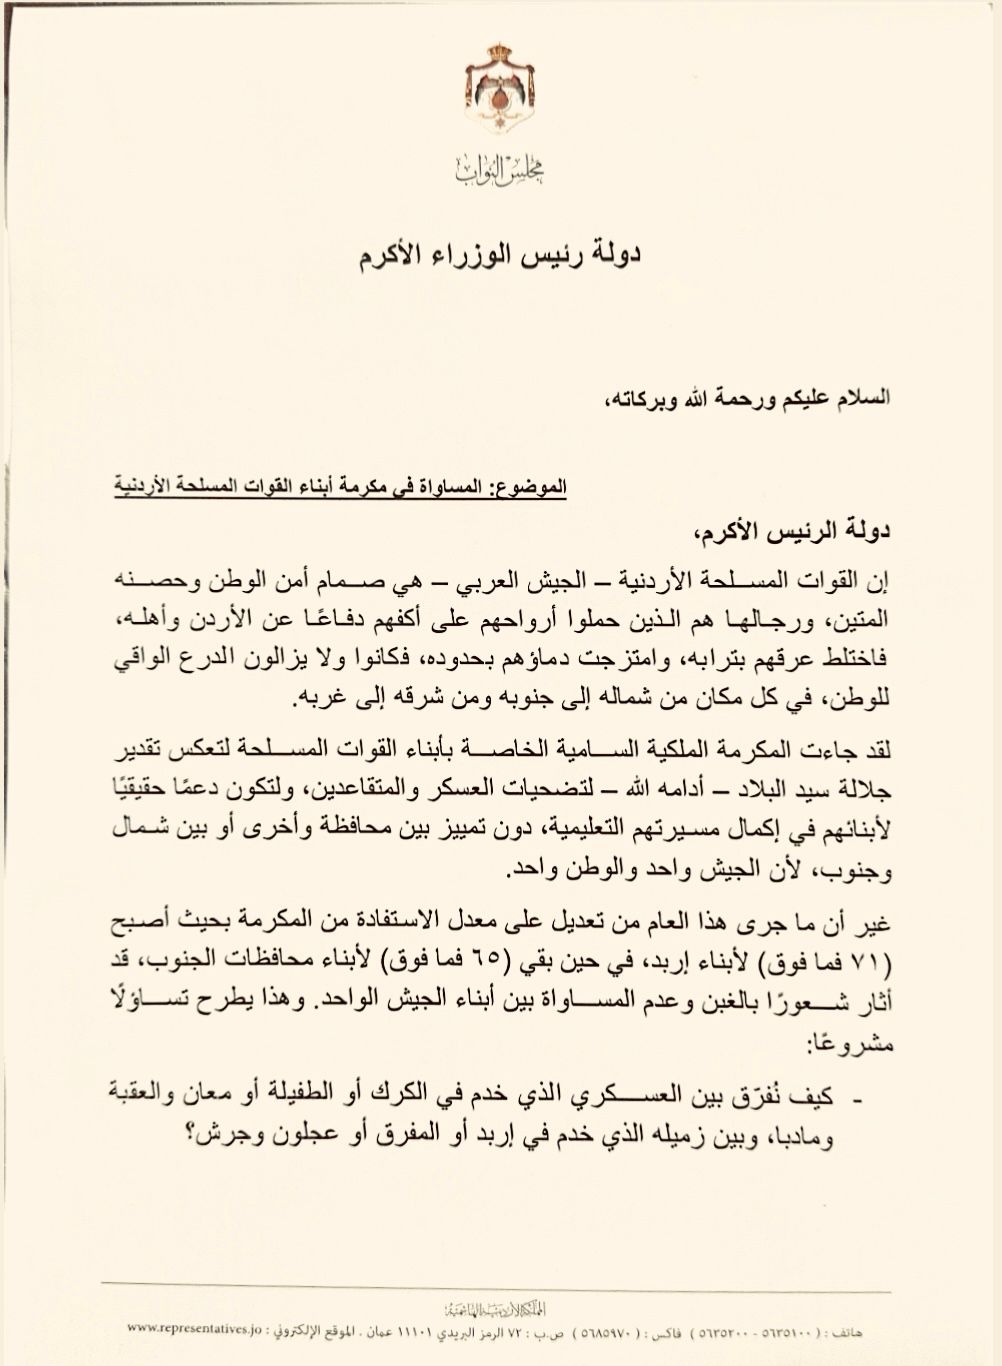 مجلس النواب
دولة رئيس الوزراء الأكرم
السلام عليكم ورحمة الله وبركاته،
الموضوع: المساواة في مكرمة أبناء القوات المسلحة الأردنية
دولة الرئيس الأكرم،
إن القوات المسلحة الأردنية – الجيش العربي – هي صمام أمن الوطن وحصنه
المتين، ورجالها هم الذين حملوا أرواحهم على أكفهم دفاعًا عن الأردن وأهله،
فاختلط عرقهم بترابه، وامتزجت دماؤهم بحدوده، فكانوا ولا يزالون الدرع الواقي
للوطن، في كل مكان من شماله إلى جنوبه ومن شرقه إلى غربه.
لقد جاءت المكرمة الملكية السامية الخاصة بأبناء القوات المسلحة لتعكس تقدير
جلالة سيد البلاد – أدامه الله – لتضحيات العسكر والمتقاعدين، ولتكون دعمًا حقيقيًا
لأبنائهم في إكمال مسيرتهم التعليمية، دون تمييز بين محافظة وأخرى أو بين شمال
وجنوب، لأن الجيش واحد والوطن واحد.
غير أن ما جرى هذا العام من تعديل على معدل الاستفادة من المكرمة بحيث أصبح
(٧١ فما فوق) لأبناء إربد، في حين بقي (٦٥ فما فوق) لأبناء محافظات الجنوب، قد
أثار شعورًا بالغبن وعدم المساواة بين أبناء الجيش الواحد. وهذا يطرح تساؤلًا
مشروعًا:
- كيف نُفرّق بين العسكري الذي خدم في الكرك أو الطفيلة أو معان والعقبة
ومادبا، وبين زميله الذي خدم في إربد أو المفرق أو عجلون وجرش؟
المملكة الأردنية الهاشمية
هاتف : ( ٥٦٣٥١٠٠ - ٥٦٣٥٢٠٠ ) فاكس : ( ٥٦٨٥٩٧٠ ) ص.ب : ٧٢ الرمز البريدي ١١١٠١ عمان . الموقع الإلكتروني : www.representatives.jo